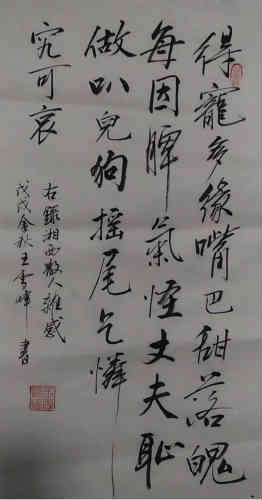 得寵多緣嘴巴甜落魄
每因脾氣怪丈夫恥
做叭兒狗搖尾乞憐
究可哀
右錄湘西散人雜感
戊戌金秋王雪峰書